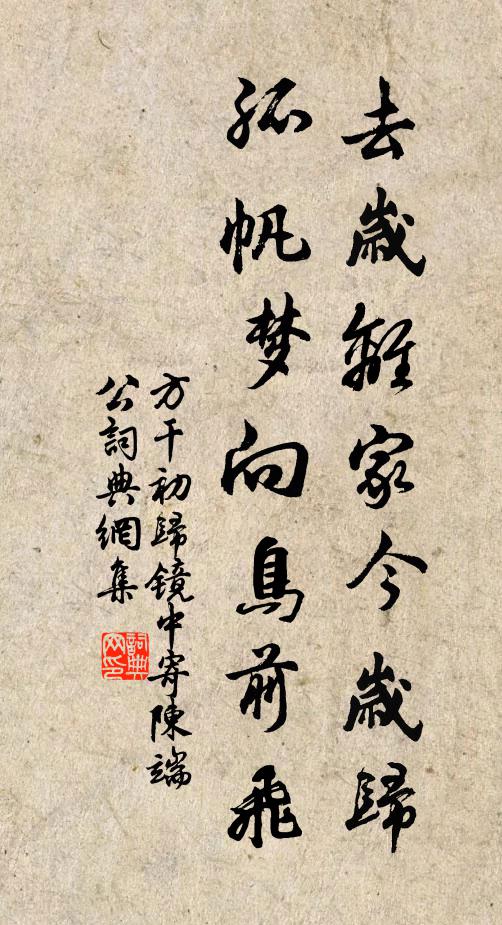 去歲離家今歲歸
孤帆梦向鳥前飛
方干初歸鏡中寄陳端
公詞典網集
詞典网印